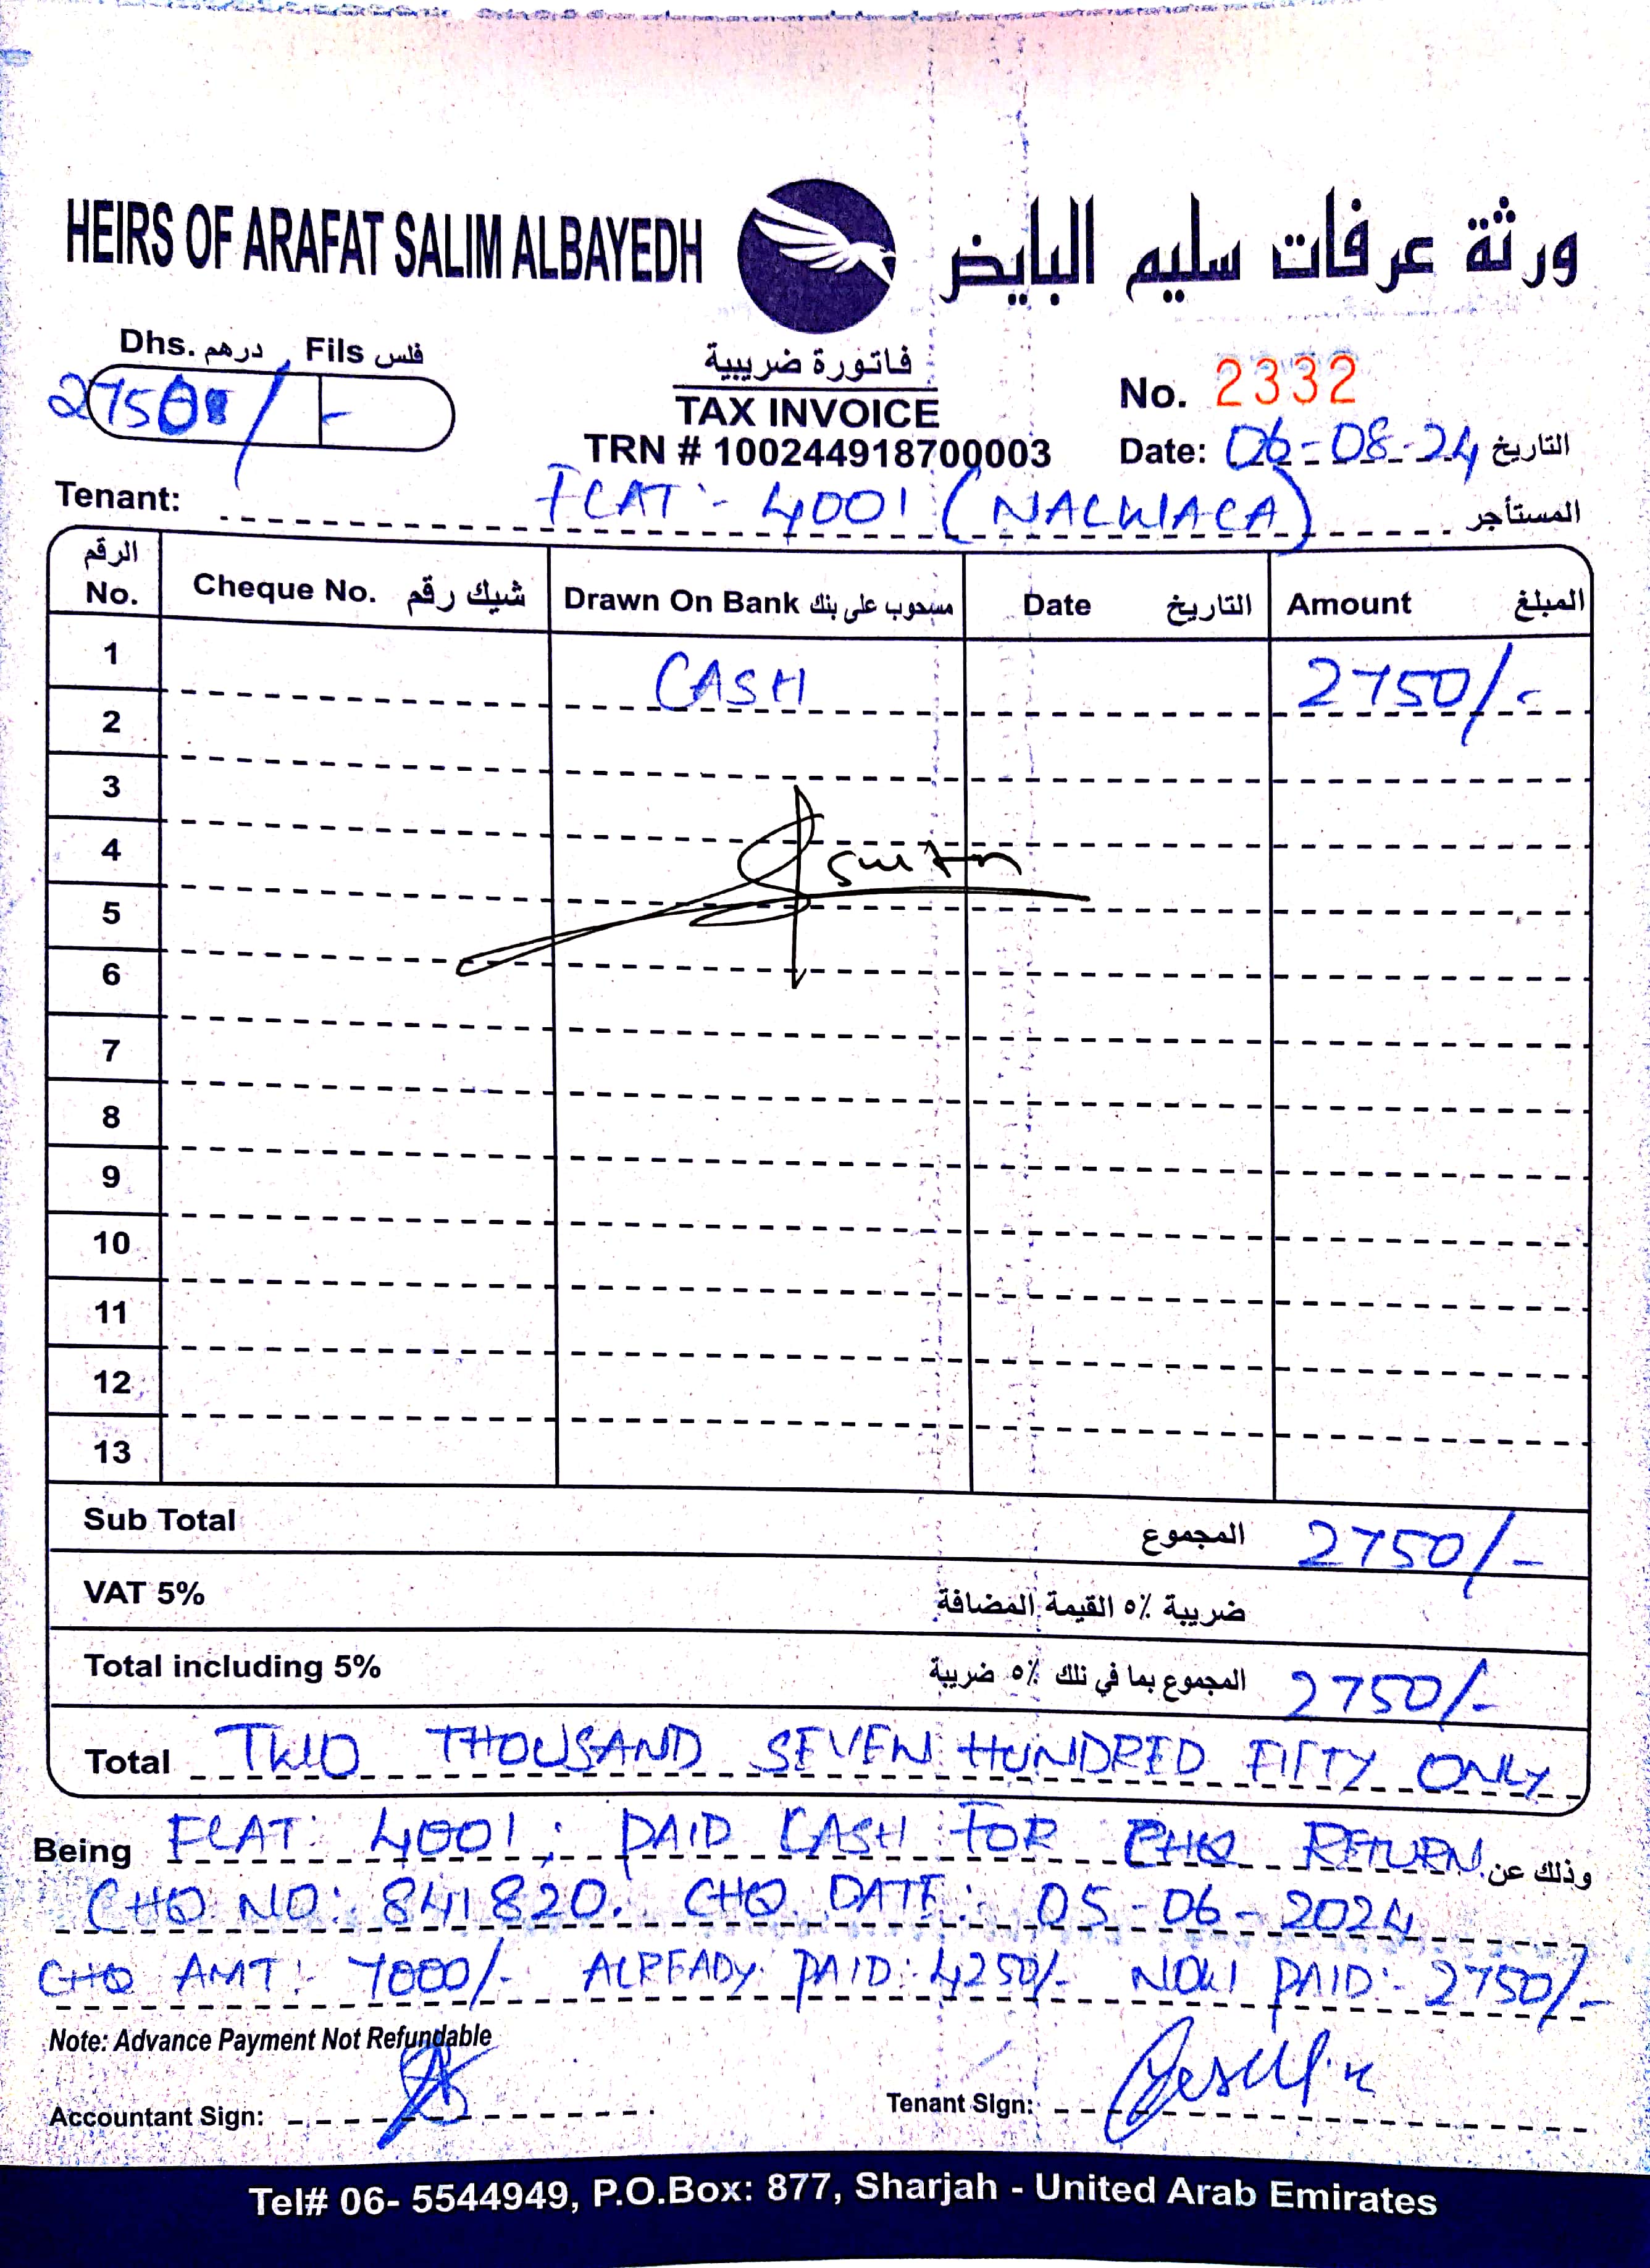 HEIRS OF ARAFAT SALIM ALBAYEDH ورثة عرفات سليم البايض
Dhs. درهم Fils فلس
2750/-
فاتورة ضريبية
TAX INVOICE
TRN # 100244918700003
No. 2332
Date: 06-08-24 التاريخ
Tenant: FLAT:- 4001 (NALWALA) المستأجر
الرقم No. Cheque No. شيك رقم Drawn On Bank مسحوب على بنك Date التاريخ Amount المبلغ
1 CASH 2750/-
2
3
4
5
6
7
8
9
10
11
12
13
Sub Total المجموع 2750/-
VAT 5% ضريبة ٥٪ القيمة المضافة
Total including 5% المجموع بما في تلك ٥٪ ضريبة 2750/-
Total TWO THOUSAND SEVEN HUNDRED FIFTY ONLY
Being FLAT: 4001; PAID CASH FOR CHQ RETURN. وذلك عن
CHQ NO: 841820. CHQ DATE: 05-06-2024
CHQ AMT:- 7000/- ALREADY PAID:- 4250/- NOW PAID:- 2750/-
Note: Advance Payment Not Refundable
Accountant Sign: Tenant Sign:
Tel# 06- 5544949, P.O.Box: 877, Sharjah - United Arab Emirates